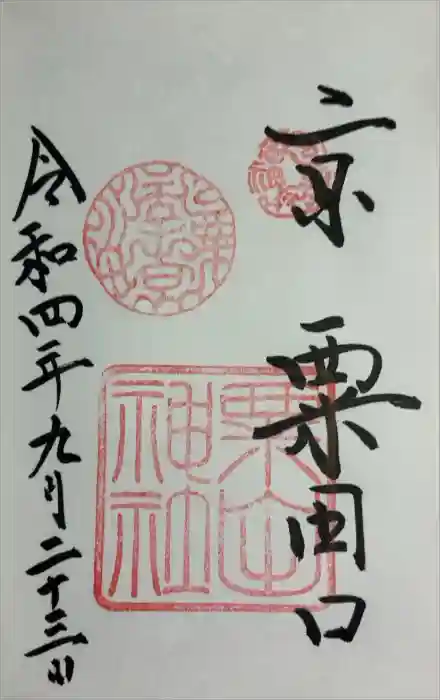 京 粟田口
令和四年九月二十三日
粟田神社